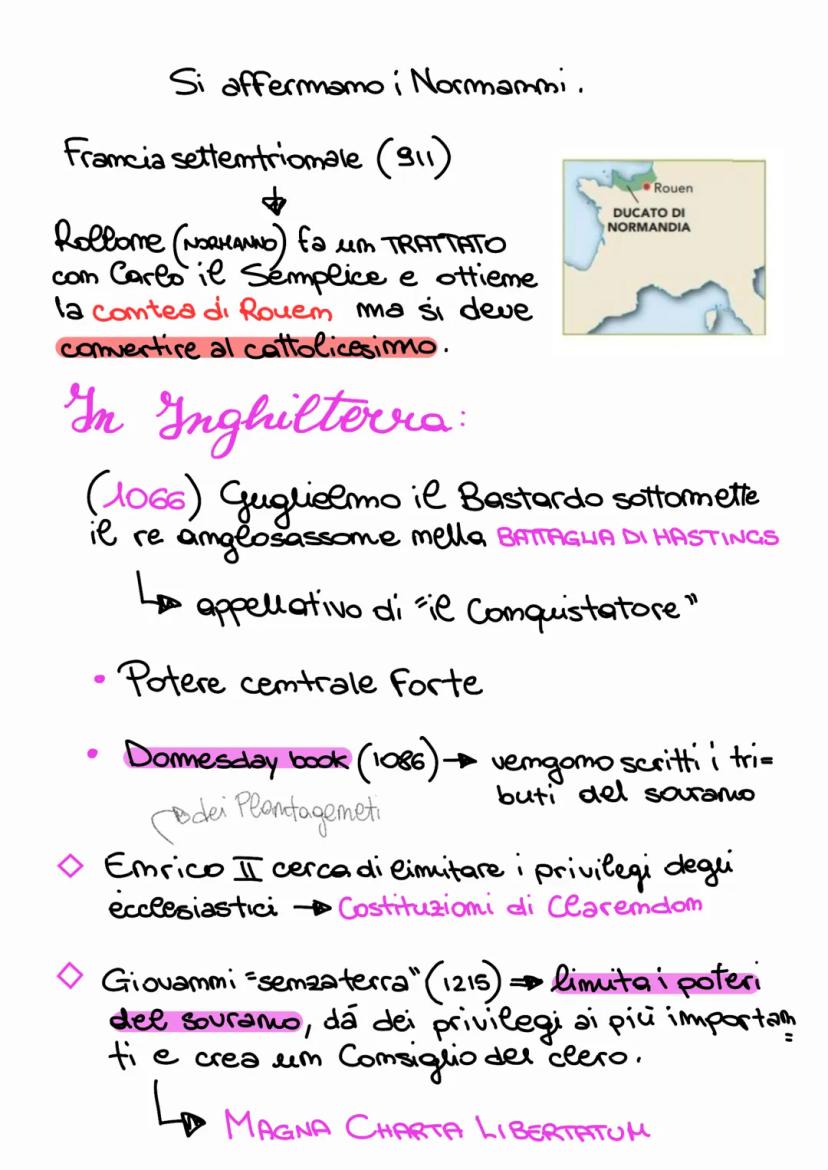 Si affermano i Normanni.
Francia settentrionale (911)
Rouen
DUCATO DI
NORMANDIA
Rollone (NORMANNO) fa un TRATTATO
con Carlo il Semplice e ottiene
la contea di Rouen ma si deve
convertire al cattolicesimo.
In Inghilterra:
(1066) Guglielmo il Bastardo sottomette
il re anglosassone nella BATTAGLIA DI HASTINGS
appellativo di "il Conquistatore"
• Potere centrale Forte
• Domesday book (1086) → vengono scritti i tri=
buti del sovrano
dei Plantageneti
Enrico II cerca di limitare i privilegi degli
ecclesiastici → Costituzioni di Clarendon
Giovanni "senzaterra" (1215) ⇒ limita i poteri
del sovrano, dá dei privilegi ai più importan=
ti e crea un Consiglio del clero.
MAGNA CHARTA LIBERTATUM